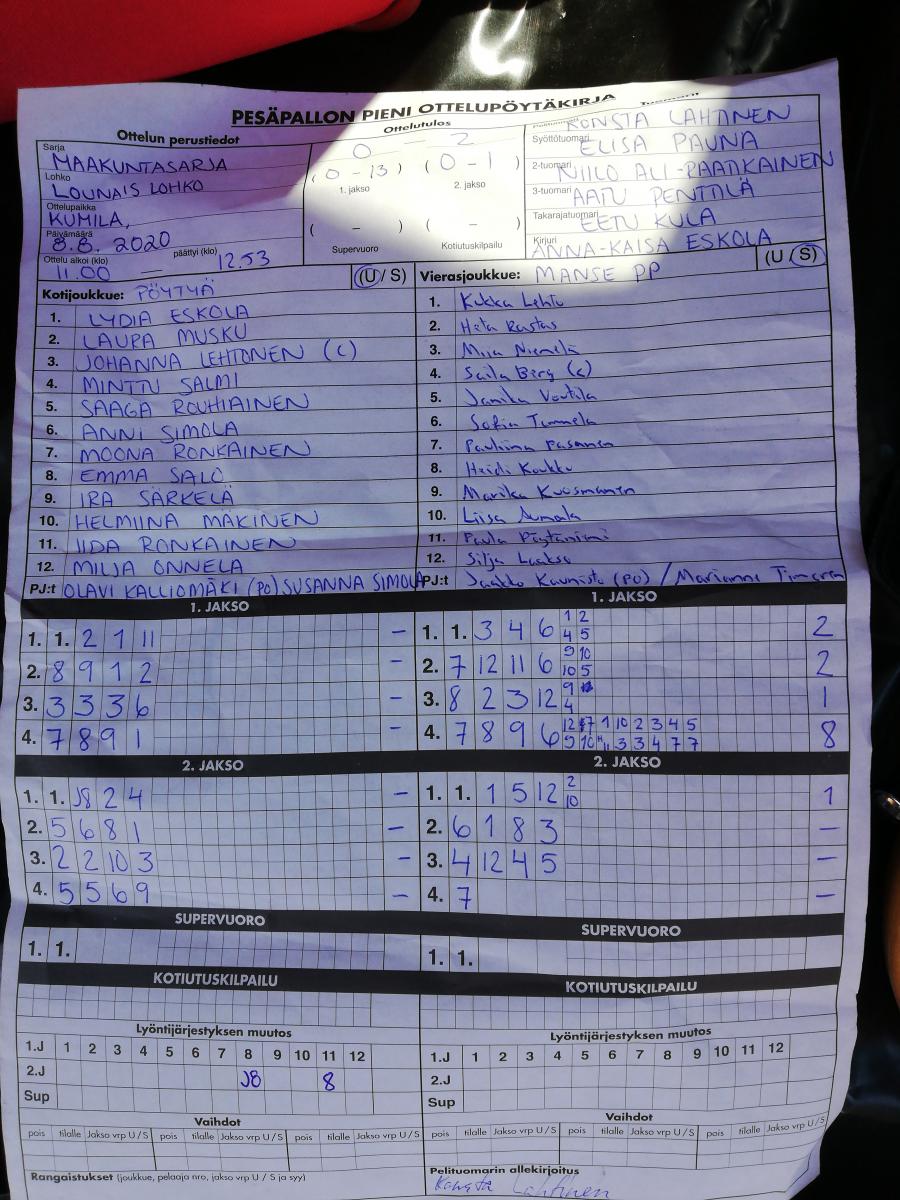 PESÄPALLON PIENI OTTELUPÖYTÄKIRJA
Ottelun perustiedot
Sarja
MAAKUNTASARJA
Lohko
LOUNAIS LOHKO
Ottelupaikka
KUMILA,
Päivämäärä
8.8. 2020
Ottelu alkoi (klo) päättyi (klo)
11.00 — 12.53
Ottelutulos
0 - 2
(0 - 13) (0 - 1)
1. jakso 2. jakso
( - ) ( - )
Supervuoro Kotiutuskilpailu
Tuomarit
KONSTA LAHTINEN
Syöttötuomari ELISA PAUNA
2-tuomari NIILO ALI-PAATKAINEN
3-tuomari AATU PENTTILÄ
Takarajatuomari EETU KULA
Kirjuri ANNA-KAISA ESKOLA
Kotijoukkue: PÖYTYÄ (U / S)
1. LYDIA ESKOLA
2. LAURA MUSKU
3. JOHANNA LEHTONEN (C)
4. MINTTU SALMI
5. SAAGA ROUHIAINEN
6. ANNI SIMOLA
7. MOONA RONKAINEN
8. EMMA SALO
9. IRA SÄRKELÄ
10. HELMIINA MÄKINEN
11. IIDA RONKAINEN
12. MILJA ONNELA
PJ:t OLAVI KALLIOMÄKI (PO) SUSANNA SIMOLA
Vierasjoukkue: MANSE PP (U / S)
1. Kukka Lehto
2. Heta Rastas
3. Miia Niemelä
4. Saila Berg (c)
5. Janika Voutila
6. Sofia Tammela
7. Pauliina Pasanen
8. Heidi Koukku
9. Marika Kuosmanen
10. Liisa Aumala
11. Paula Pöytäniemi
12. Silja Laakso
PJ:t Jaakko Kaunisto (PO) / Marianne Timonen
1. JAKSO
1. 1. 2 7 11 –
2. 8 9 1 2 –
3. 3 3 3 6 –
4. 7 8 9 1 –
1. JAKSO
1. 1. 3 4 6 1 2 4 5 2
2. 7 12 11 6 9 10 10 5 2
3. 8 2 3 12 9 4 1
4. 7 8 9 6 12 7 1 10 2 3 4 5 8
9 10 11 3 3 4 7 7
2. JAKSO
1. 1. J8 2 4 –
2. 5 6 8 1 –
3. 2 2 10 3 –
4. 5 5 6 9 –
2. JAKSO
1. 1. 1 5 12 2 10 1
2. 6 1 8 3 –
3. 4 12 4 5 –
4. 7 –
SUPERVUORO
1. 1.
SUPERVUORO
1. 1.
KOTIUTUSKILPAILU
KOTIUTUSKILPAILU
Lyöntijärjestyksen muutos
1.J 1 2 3 4 5 6 7 8 9 10 11 12
2.J J8 8
Sup
Lyöntijärjestyksen muutos
1.J 1 2 3 4 5 6 7 8 9 10 11 12
2.J
Sup
Vaihdot
pois tilalle Jakso vrp U / S pois tilalle Jakso vrp U / S pois tilalle Jakso vrp U / S
Vaihdot
pois tilalle Jakso vrp U / S pois tilalle Jakso vrp U / S pois tilalle Jakso vrp U / S
Rangaistukset (joukkue, pelaaja nro, jakso vrp U / S ja syy)
Pelituomarin allekirjoitus
Konsta Lahtinen